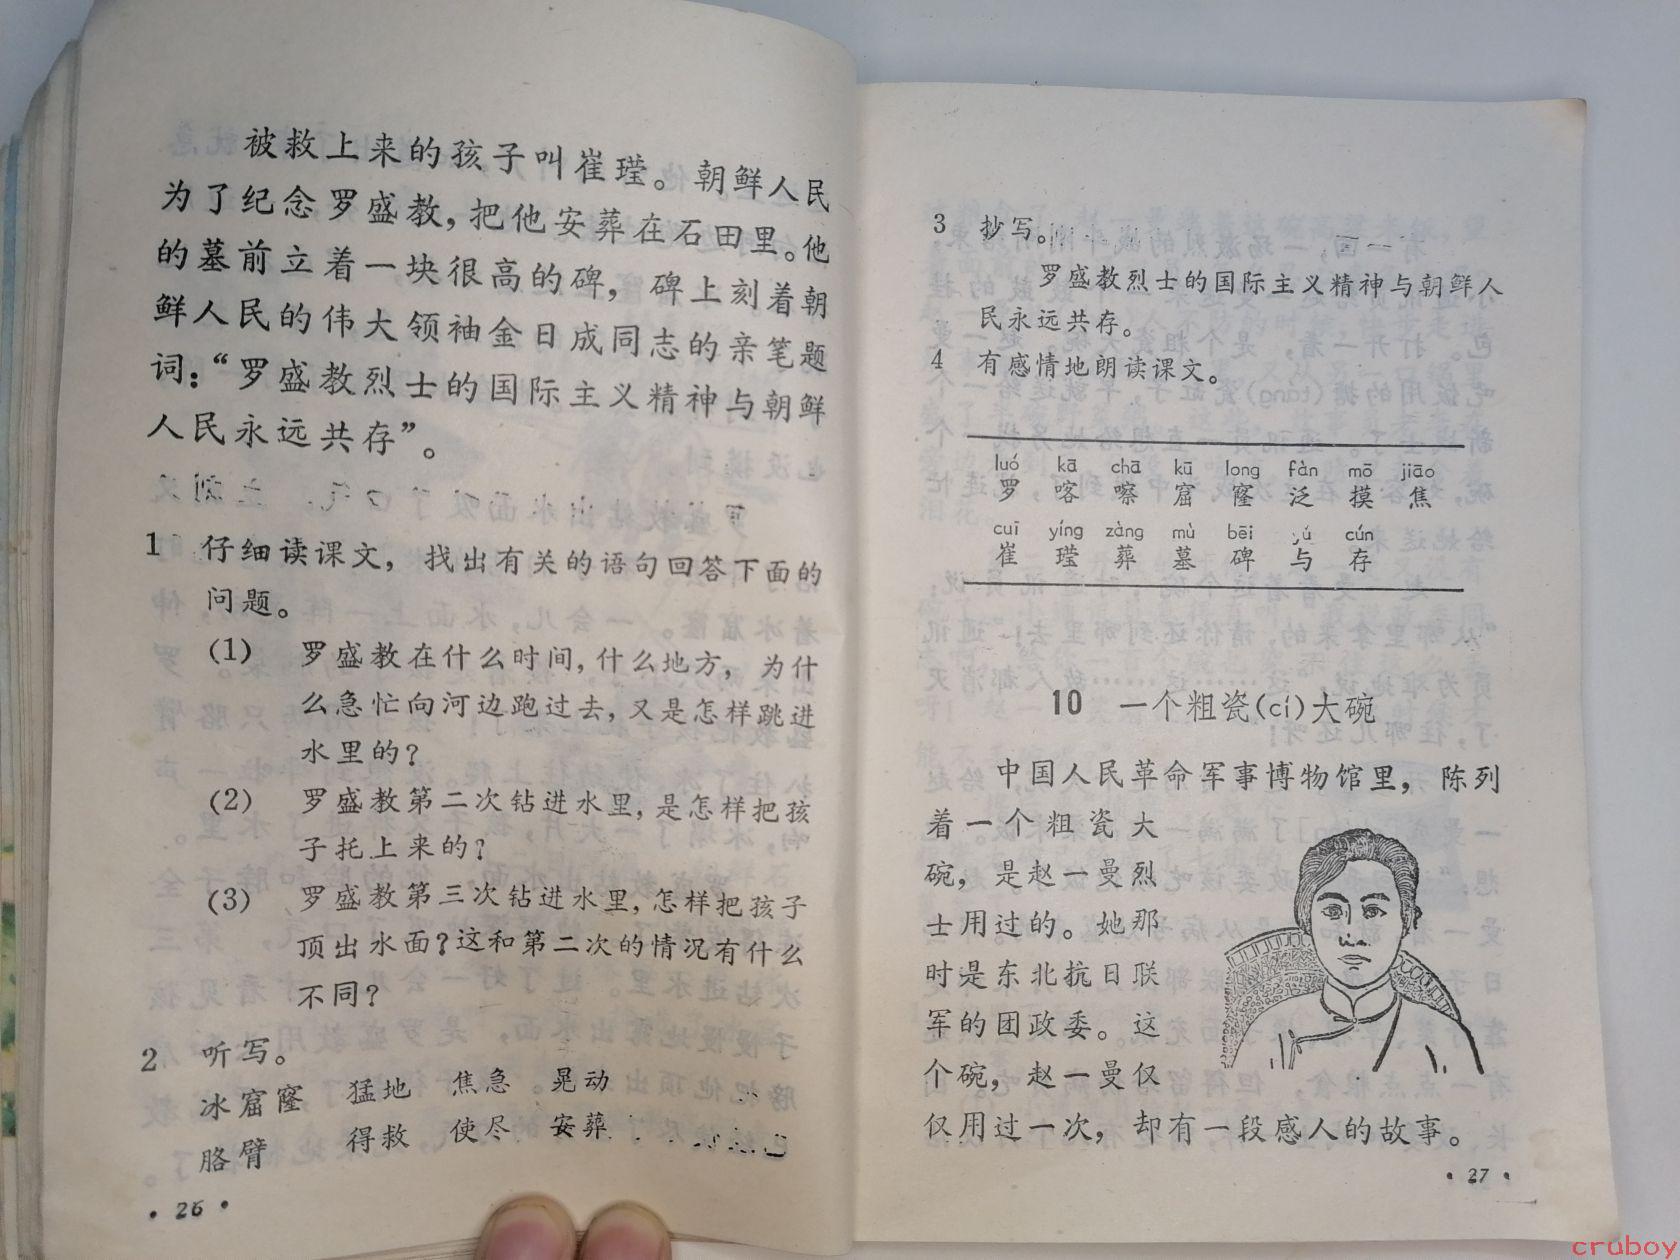 被救上来的孩子叫崔瑩。朝鲜人民
为了纪念罗盛教，把他安葬在石田里。他
的墓前立着一块很高的碑，碑上刻着朝
鲜人民的伟大领袖金日成同志的亲笔题
词：“罗盛教烈士的国际主义精神与朝鲜
人民永远共存”。
1 仔细读课文，找出有关的语句回答下面的
问题。
(1) 罗盛教在什么时间，什么地方，为什
么急忙向河边跑过去，又是怎样跳进
水里的？
(2) 罗盛教第二次钻进水里，是怎样把孩
子托上来的？
(3) 罗盛教第三次钻进水里，怎样把孩子
顶出水面？这和第二次的情况有什么
不同？
2 听写。
冰窟窿 猛地 焦急 晃动
胳臂 得救 使尽 安葬
·26·
3 抄写。
罗盛教烈士的国际主义精神与朝鲜人
民永远共存。
4 有感情地朗读课文。
luó kā chā kū long fàn mō jiāo
罗 喀 嚓 窟 窿 泛 摸 焦
cuī yíng zàng mù bēi yǔ cún
崔 瑩 葬 墓 碑 与 存
10 一个粗瓷(cí)大碗
中国人民革命军事博物馆里，陈列
着一个粗瓷大
碗，是赵一曼烈
士用过的。她那
时是东北抗日联
军的团政委。这
个碗，赵一曼仅
仅用过一次，却有一段感人的故事。
·27·
cruboy